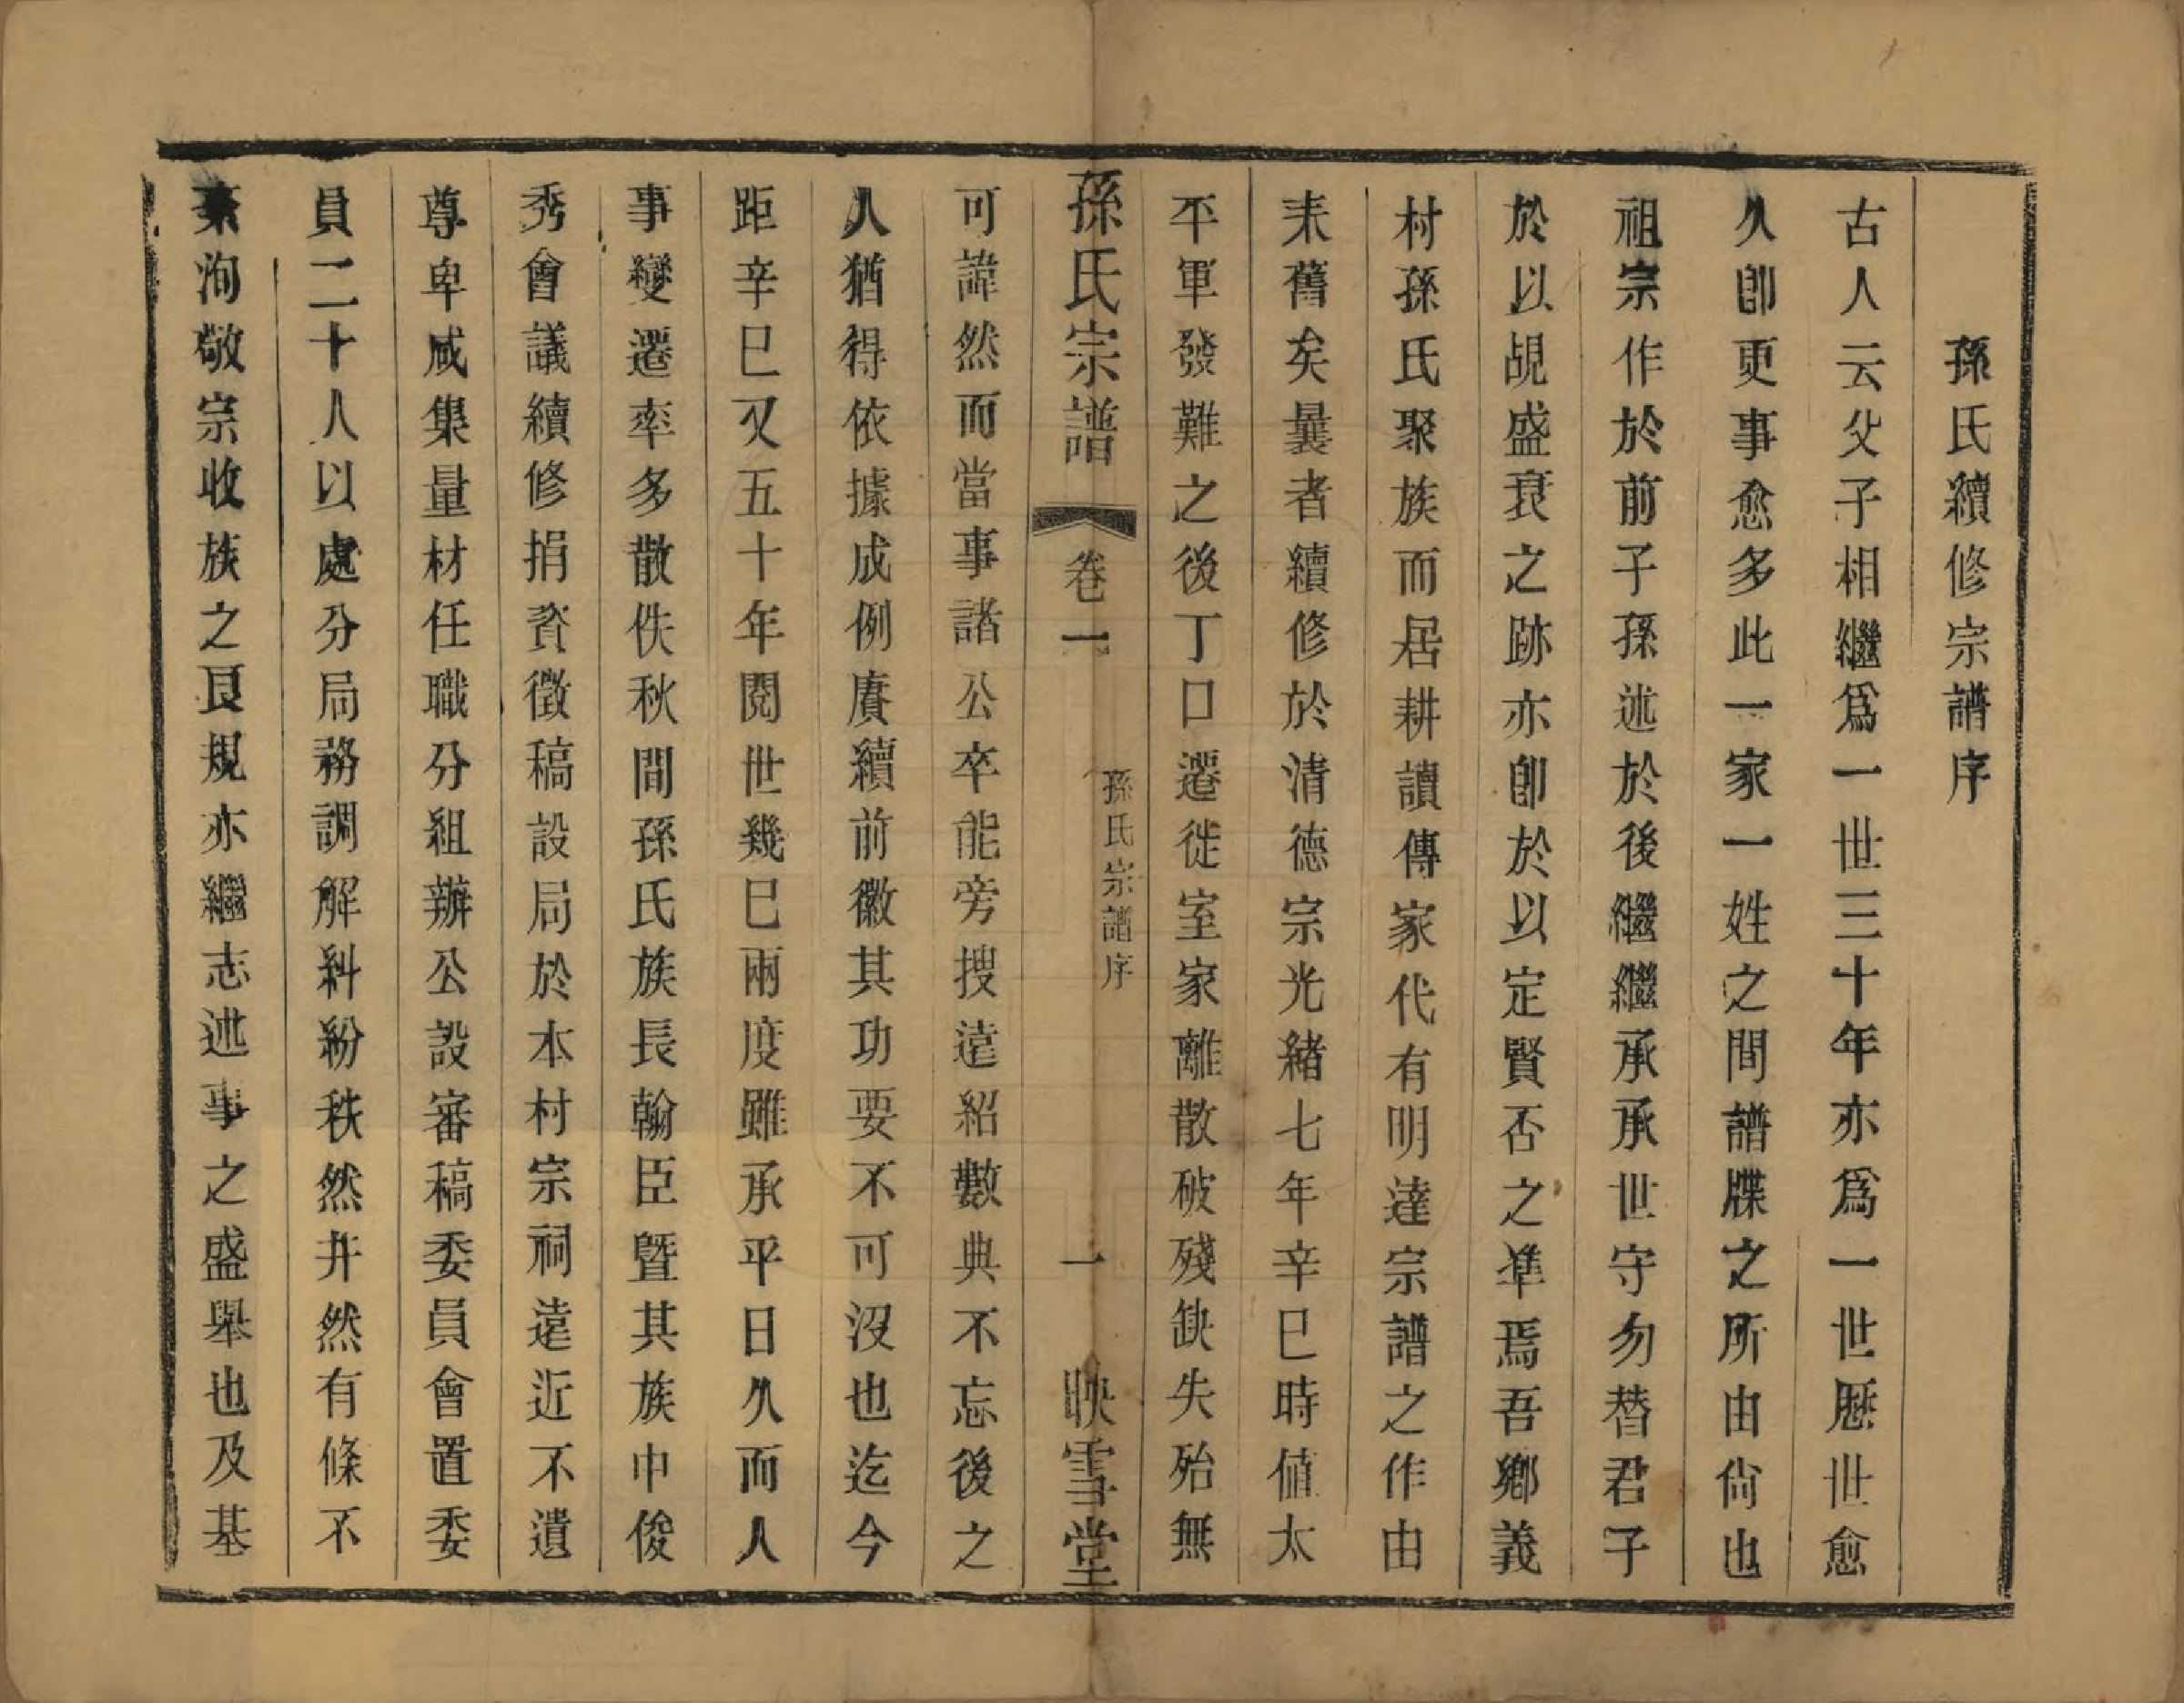 孫氏續修宗譜序
古人云父子相繼爲一世三十年亦爲一世歷世愈
久卽更事愈多此一家一姓之間譜牒之所由尙也
祖宗作於前子孫述於後繼繼承承世守勿替君子
於以覘盛衰之跡亦卽於以定賢否之準焉吾鄉義
村孫氏聚族而居耕讀傳家代有明達宗譜之作由
來舊矣曩者續修於清德宗光緒七年辛巳時値太
平軍發難之後丁口遷徙室家離散破殘缺失殆無
孫氏宗譜 卷一 孫氏宗譜序 一 映雪堂
可諱然而當事諸公卒能旁搜遠紹數典不忘後之
人猶得依據成例賡續前徽其功要不可沒也迄今
距辛巳又五十年閱世幾已兩度雖承平日久而人
事變遷率多散佚秋間孫氏族長翰臣曁其族中俊
秀會議續修捐資徵稿設局於本村宗祠遠近不遺
尊卑咸集量材任職分組辦公設審稿委員會置委
員二十人以處分局務調解糾紛秩然井然有條不
紊洵敬宗收族之良規亦繼志述事之盛舉也及基